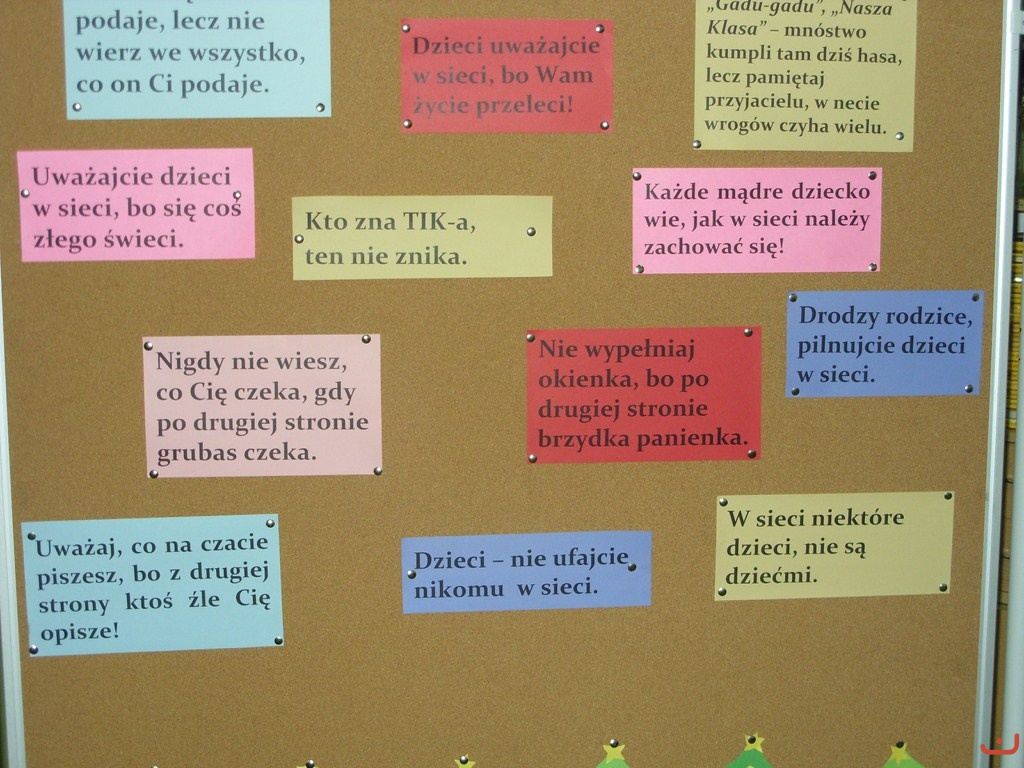 podaje, lecz nie
wierz we wszystko,
co on Ci podaje.
Dzieci uważajcie
w sieci, bo Wam
życie przeleci!
„Gadu-gadu”, „Nasza
Klasa” – mnóstwo
kumpli tam dziś hasa,
lecz pamiętaj
przyjacielu, w necie
wrogów czyha wielu.
Uważajcie dzieci
w sieci, bo się coś
złego świeci.
Kto zna TIK-a,
ten nie znika.
Każde mądre dziecko
wie, jak w sieci należy
zachować się!
Drodzy rodzice,
pilnujcie dzieci
w sieci.
Nigdy nie wiesz,
co Cię czeka, gdy
po drugiej stronie
grubas czeka.
Nie wypełniaj
okienka, bo po
drugiej stronie
brzydka panienka.
Uważaj, co na czacie
piszesz, bo z drugiej
strony ktoś źle Cię
opisze!
Dzieci – nie ufajcie
nikomu w sieci.
W sieci niektóre
dzieci, nie są
dziećmi.